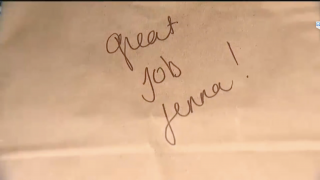 great
job
Jenna!